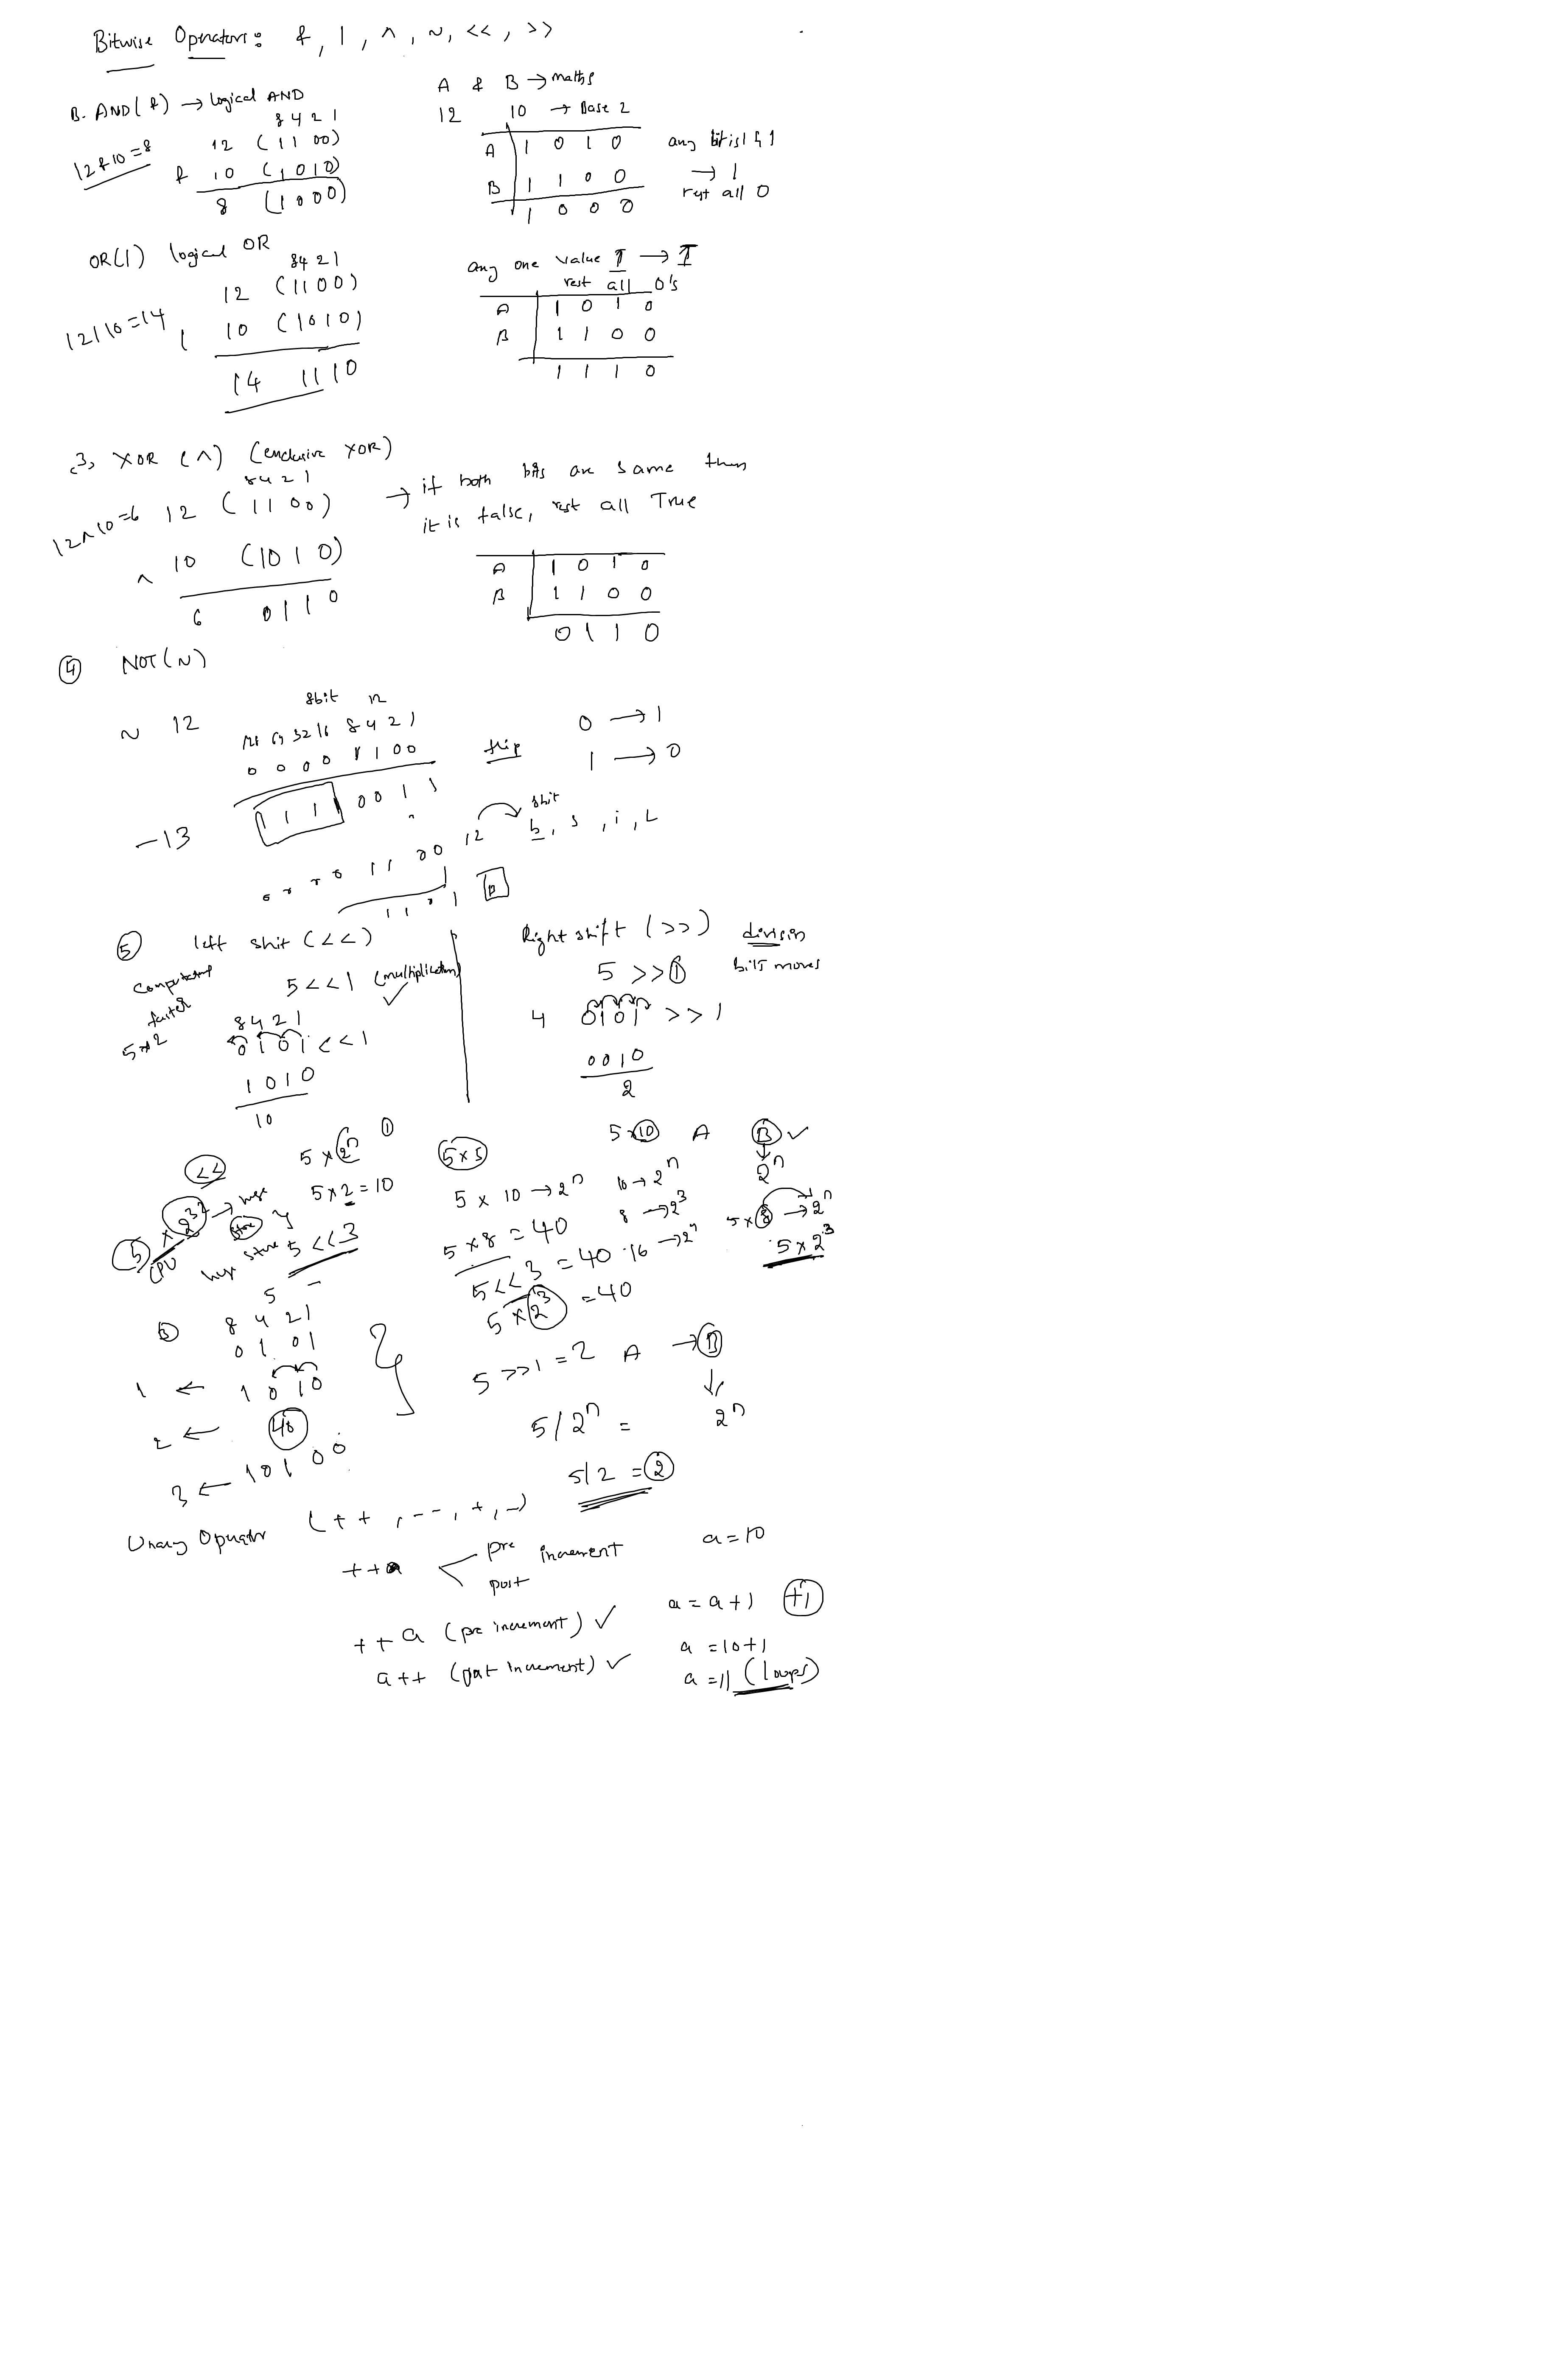 Bitwise Operators: &, |, ^, ~, <<, >>
B. AND(&) → logical AND
8 4 2 1
12 (1100)
12&10=8
& 10 (1010)
8 (1000)
A & B → maths
12 10 → Base 2
A 1 0 1 0
B 1 1 0 0
1 0 0 0
any bit is 1 & 1
→ 1
rest all 0
OR(|) logical OR
8421
12 (1100)
12|10=14
| 10 (1010)
14 1110
any one value 1 → 1
rest all 0's
A 1 0 1 0
B 1 1 0 0
1 1 1 0
3, XOR (^) (exclusive XOR)
8421
12^10=6 12 (1100)
^ 10 (1010)
6 0110
→ if both bits are same then
it is false, rest all True
A 1 0 1 0
B 1 1 0 0
0 1 1 0
④ NOT(~)
8bit 12
~ 12
128 64 32 16 8 4 2 1
0 0 0 0 1 1 0 0
flip
0 → 1
1 → 0
-13
1 1 1 1 0 0 1 1
12 8bit
b, s, i, L
1100
⑤ left shit (<<)
computers
faster
5*2
5<<1 (multiplication)
8421
0101<<1
1010
10
Right shift (>>) division
5 >>① bits moves
4 0101 >> 1
0010
2
<<
5×2ⁿ ①
5×2=10
5×2³²
CPU
store
5<<3
5×5
5×10 A B ✓
↓
2ⁿ
5 × 10→2ⁿ
10→2ⁿ
8→2³
5×8→2ⁿ
5×8=40
16→2ⁿ
5×2³
5<<3=40
5×2³=40
5
8 4 21
0 1 01
1 ← 1 0 10
2 ← 40
3 ← 101 00
5>>1=2 A → B
↓
5/2ⁿ = 2ⁿ
5/2=②
Unary Operator (++, --, +, -)
++a
pre
post
increment
a=10
++a (pre increment) ✓
a=a+1 +1
a++ (post increment) ✓
a=10+1
a=11 (loops)